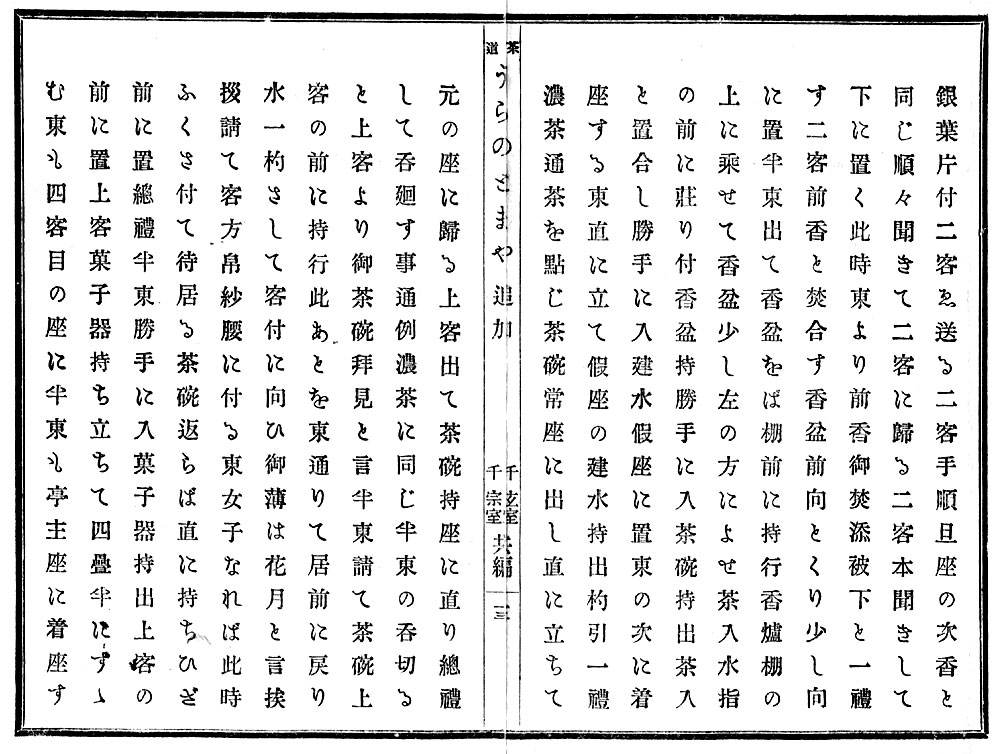 銀葉片付二客ゑ送る二客手順旦座の次香と
同じ順々聞きて二客に歸る二客本聞きして
下に置く此時東より前香御焚添被下と一禮
す二客前香と焚合す香盆前向とくり少し向
に置半東出て香盆をば棚前に持行香爐棚の
上に乘せて香盆少し左の方によせ茶入水指
の前に莊り付香盆持勝手に入茶碗持出茶入
と置合し勝手に入建水假座に置東の次に着
座する東直に立て假座の建水持出杓引一禮
濃茶通茶を點じ茶碗常座に出し直に立ちて
茶道うらのとまや追加 千玄室 千宗室 共編 三
元の座に歸る上客出て茶碗持座に直り總禮
して呑廻す事通例濃茶に同じ半東の呑切る
と上客より御茶碗拜見と言半東請て茶碗上
客の前に持行此あとを東通りて居前に戻り
水一杓さして客付に向ひ御薄は花月と言挨
拶請て客方帛紗腰に付る東女子なれば此時
ふくさ付て待居る茶碗返らば直に持ちひざ
前に置總禮半東勝手に入菓子器持出上客の
前に置上客菓子器持ち立ちて四疊半にすゝ
む東も四客目の座に半東も亭主座に着座す